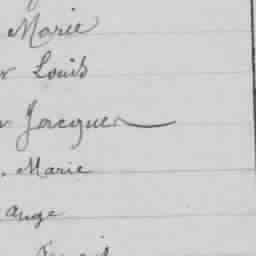 Marie
r Louis
Jacques
. Marie
ange